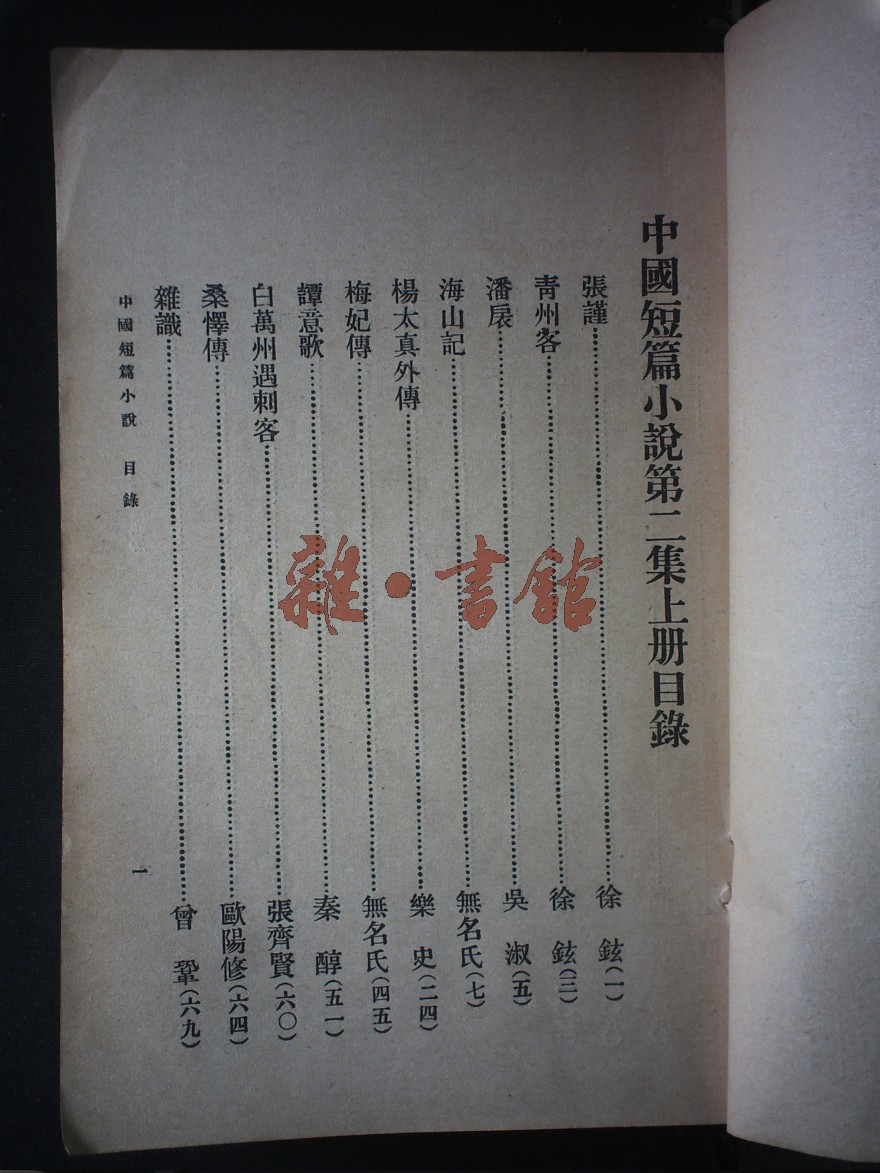 中國短篇小說第二集上册目錄
張謹……徐 鉉(一)
青州客……徐 鉉(三)
潘扆……吳 淑(五)
海山記……無名氏(七)
楊太真外傳……樂 史(二四)
梅妃傳……無名氏(四五)
譚意歌……秦 醇(五一)
白萬州遇刺客……張齊賢(六〇)
桑懌傳……歐陽修(六四)
雜識……曾 鞏(六九)
中國短篇小說 目錄
一
雜·書館